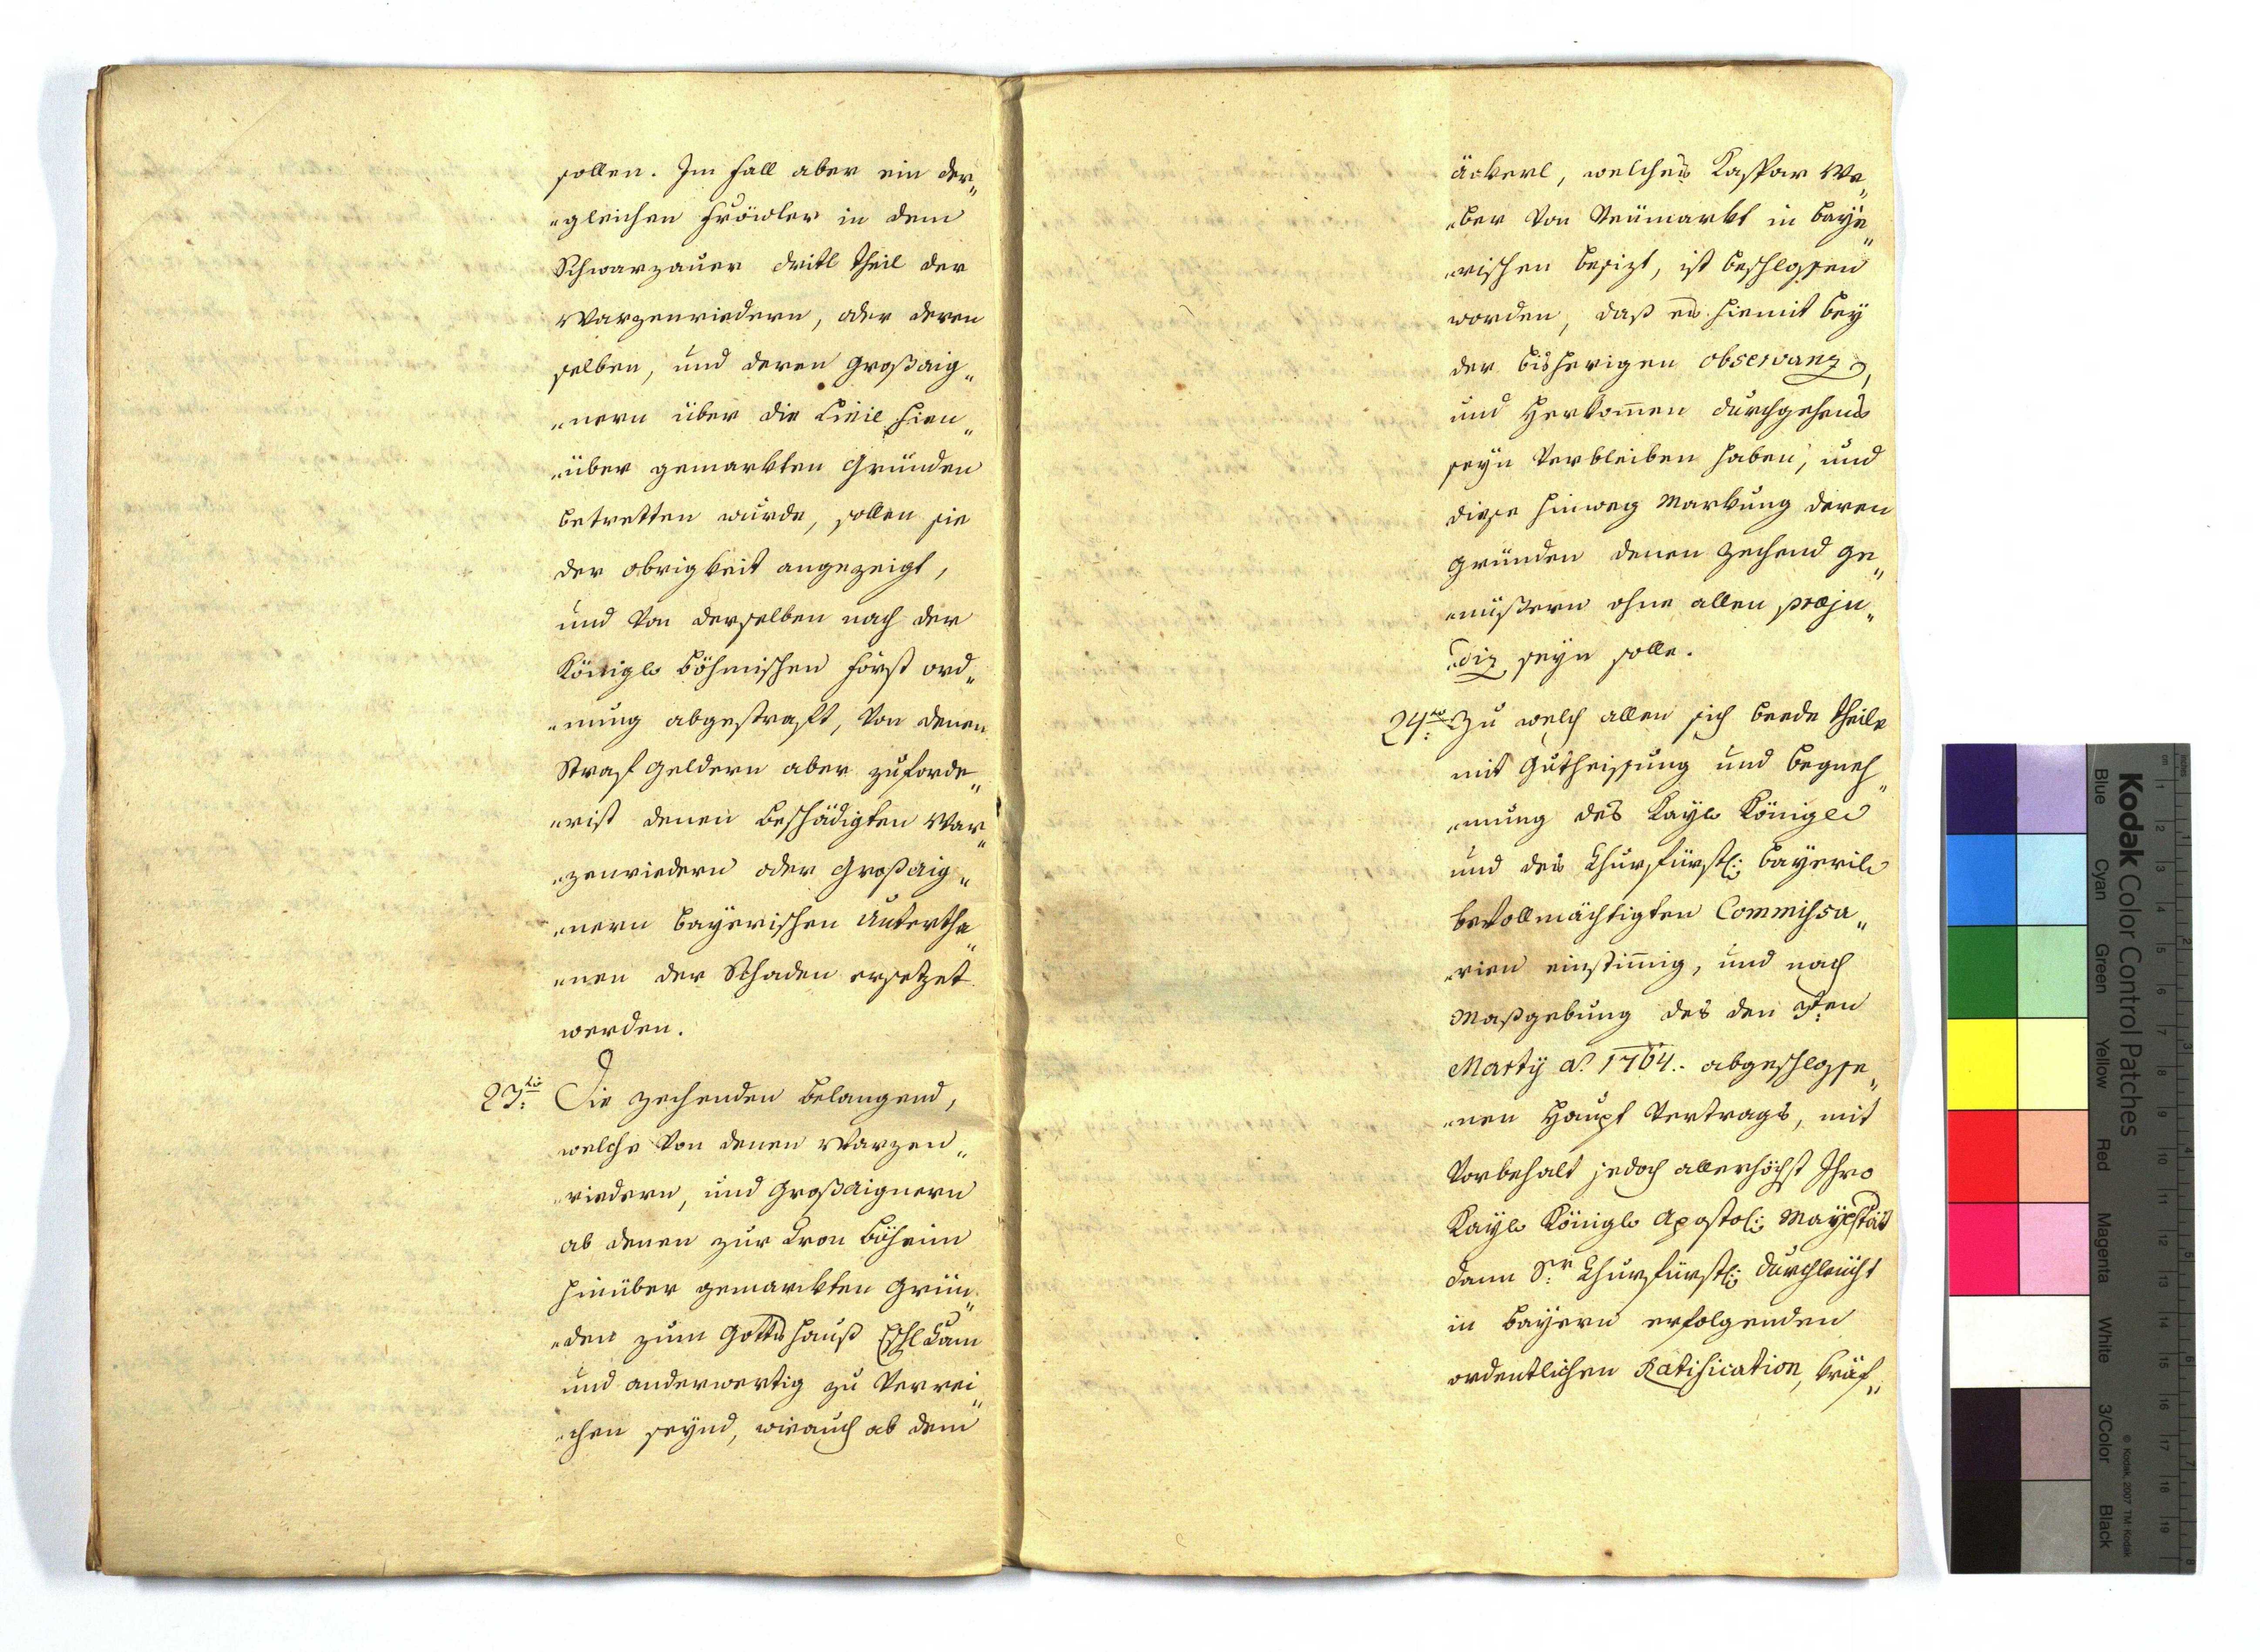 sollen. Im fall aber ein der„
„gleichen Frövler in dem
Schwarzauer dritl theil der
Warzenriedern, oder deren
selben, und deren Großaig„
„nern über die Linie hien„
„über gemarkten Gründen
betretten wurde, sollen sie
der obrigkeit angezeigt,
und von derselben nach der
Königl. Böhmischen forst ord„
„nung abgestraft, von denen
Straf geldern aber zuforde„
„rist denen beschädigten War„
„zenriedern oder Großaig„
„nern bayerischen Untertha„
„nen der Schaden ersetzet
werden.
23:tio Die zehenden belangend,
welche von denen Warzen„
„riedern, und Großaignern
ab denen zur Cron Böheim
hinüber gemarckten Grün„
„den zum Gottshauß Eschlkam
und anderwertig zu verrei„
„chen seynd, wie auch ab dem
äckerl, welches Kaspar We„
„ber von Neümarkt in baye„
„rischen besizt, ist beschlossen
worden, daß es hiemit bey
der bisherigen observanz,
und Herkom̄en durchgehends
seyn verbleiben haben, und
diese hinweg Markung deren
gründen denen zehend ge„
„nüssern ohne allen præju„
„diz seyn solle.
24:to Zu welch allen sich beede theile
mit Gutheissung und begneh„
„mung des Kayl. Königl.
und des Churfürstl: bayeril.
bevollmächtigten Commissa„
„rien einstim̄ig, und nach
Maßgebung des den 3ten
Marty aº 1764.. abgeschlosse„
„nen Haupt Vertrags, mit
Vorbehalt jedoch allerhöchst Ihro
Kayl. Königl. Apostol: Mayestät
dann Sr: Churfürstl: Durchleücht
in Bayern erfolgenden
ordentlichen Ratification, kräf„
Kodak Color Control Patches
Blue Cyan Green Yellow Red Magenta White 3/Color Black
© Kodak, 2007 TM: Kodak
cm 1 2 3 4 5 6 7 8 9 10 11 12 13 14 15 16 17 18 19
inches 1 2 3 4 5 6 7 8